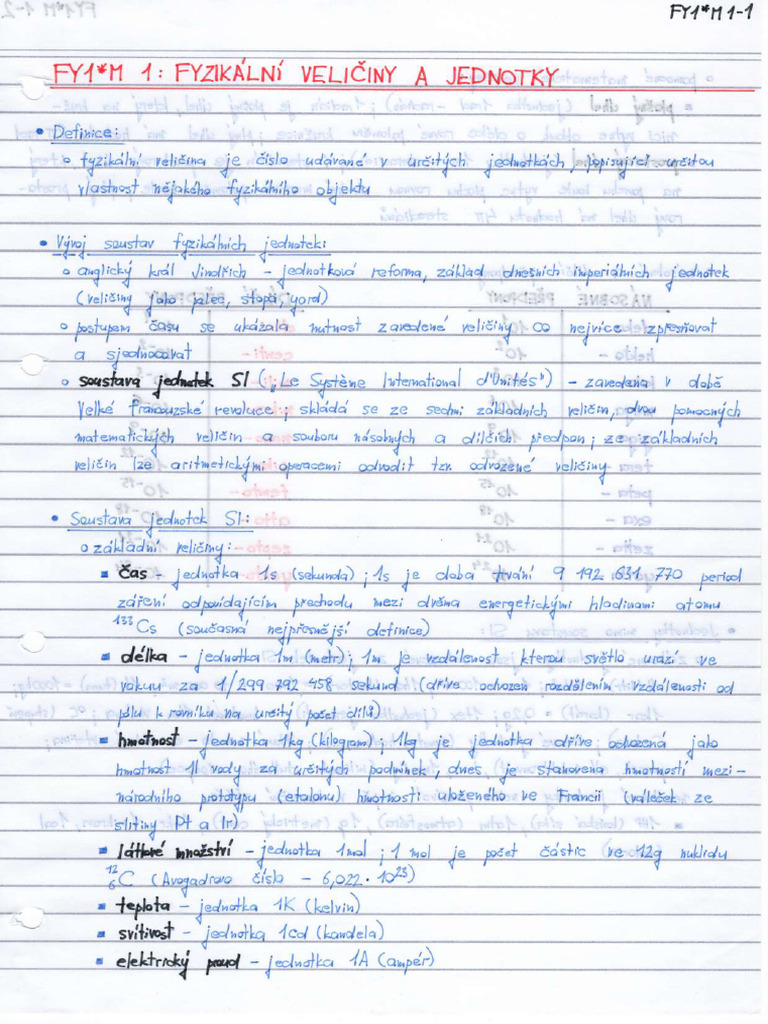 FY1*M 1-1
FY1*M 1: FYZIKÁLNÍ VELIČINY A JEDNOTKY
• Definice:
o fyzikální veličina je číslo udávané v určitých jednotkách, popisující určitou
vlastnost nějakého fyzikálního objektu
• Vývoj soustav fyzikálních jednotek:
o anglický král Jindřich – jednotková reforma, základ dnešních imperiálních jednotek
(veličiny jako palec, stopa, yard)
o postupem času se ukázala nutnost zavedené veličiny co nejvíce zpřesňovat
a sjednocovat
o soustava jednotek SI („Le Système International d'Unités") – zavedena v době
Velké francouzské revoluce; skládá se ze sedmi základních veličin, dvou pomocných
matematických veličin a souboru násobných a dílčích předpon; ze základních
veličin lze aritmetickými operacemi odvodit tzv. odvozené veličiny
• Soustava jednotek SI:
o základní veličiny:
▪ čas – jednotka 1s (sekunda); 1s je doba trvání 9 192 631 770 period
záření odpovídajícím přechodu mezi dvěma energetickými hladinami atomu
¹³³Cs (současná nejpřesnější definice)
▪ délka – jednotka 1m (metr); 1m je vzdálenost kterou světlo urazí ve
vakuu za 1/299 792 458 sekund (dříve odvozen rozdělením vzdálenosti od
pólu k rovníku na určitý počet dílů)
▪ hmotnost – jednotka 1kg (kilogram); 1kg je jednotka dříve odvozená jako
hmotnost 1l vody za určitých podmínek, dnes je stanovena hmotností mezi-
národního prototypu (etalonu) hmotnosti uloženého ve Francii (váleček ze
slitiny Pt a Ir)
▪ látkové množství – jednotka 1mol; 1 mol je počet částic ve 12g nuklidu
¹²₆C (Avogadrovo číslo – 6,022·10²³)
▪ teplota – jednotka 1K (kelvin)
▪ svítivost – jednotka 1cd (kandela)
▪ elektrický proud – jednotka 1A (ampér)